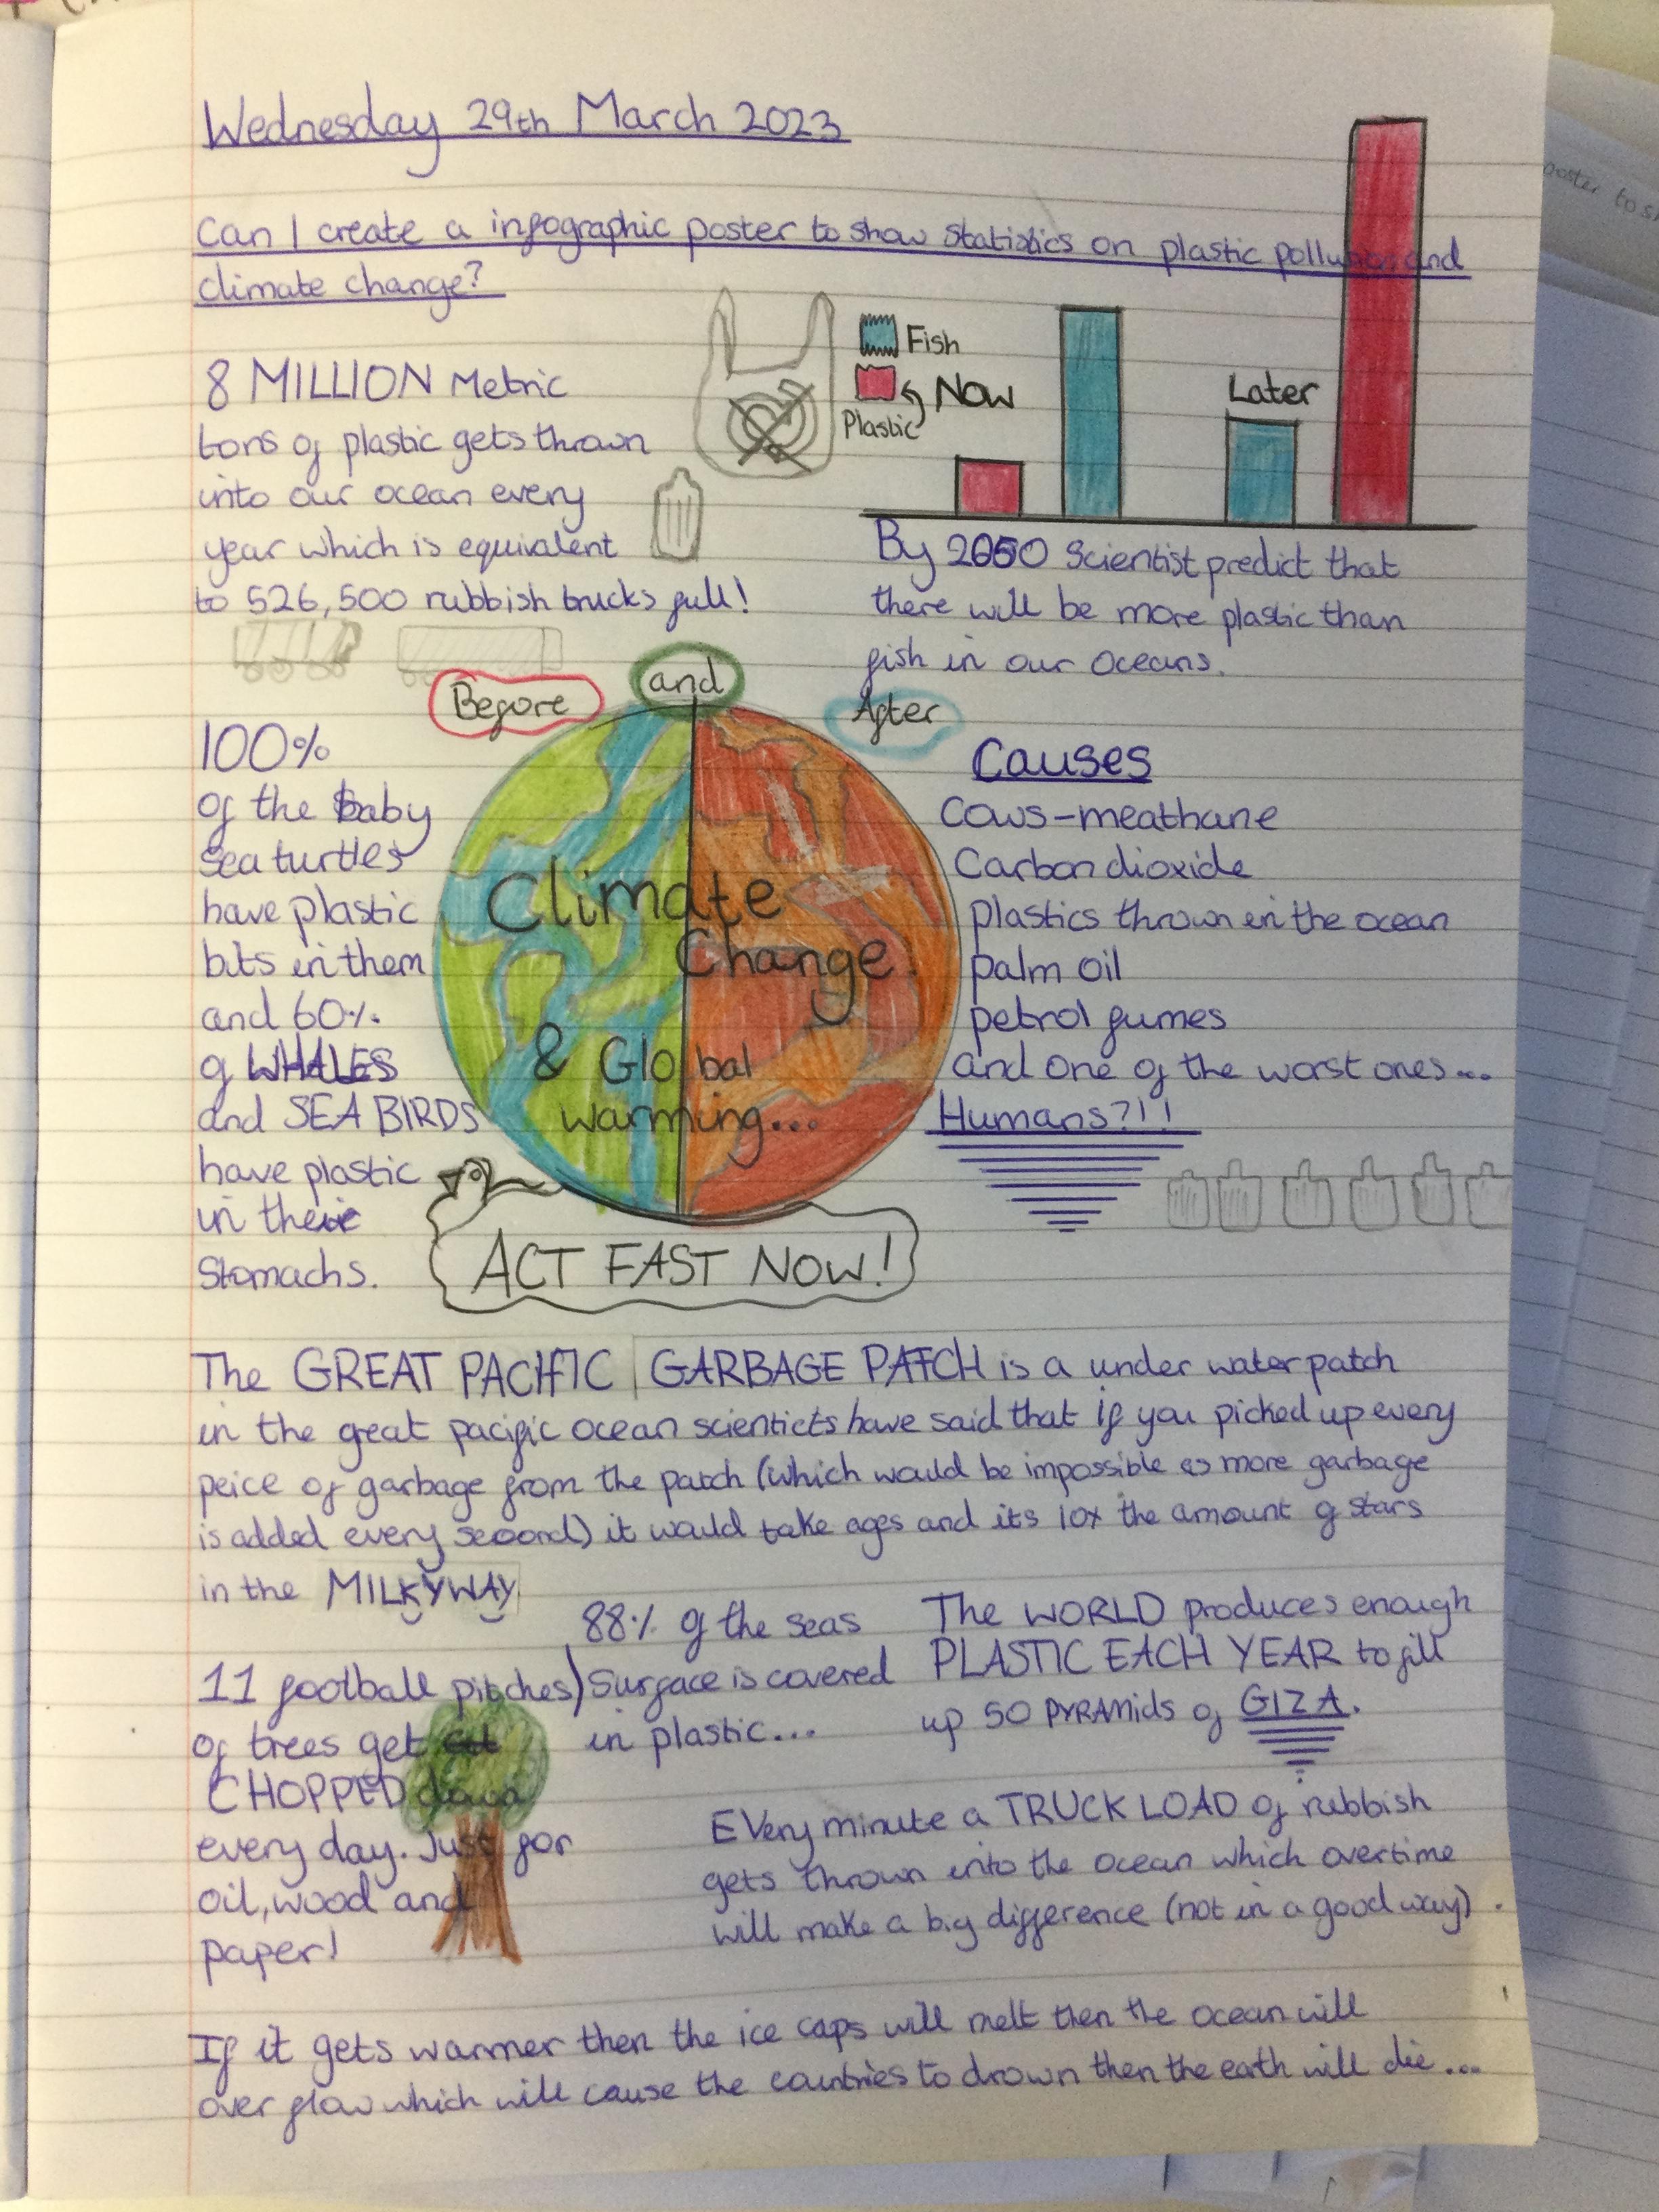 Wednesday 29th March 2023
Can I create a infographic poster to show statistics on plastic pollution and
climate change?
8 MILLION Metric
tons of plastic gets thrown
into our ocean every
year which is equivalent
to 526,500 rubbish trucks full!
Fish
Plastic
Now
Later
By 2050 Scientist predict that
there will be more plastic than
fish in our oceans.
Before
and
After
100%
of the baby
sea turtles
have plastic
bits in them
and 60%
of WHALES
and SEA BIRDS
have plastic
in their
Stomachs.
Climate
Change
& Global
warming...
ACT FAST NOW!
Causes
Cows-meathane
Carbon dioxide
plastics thrown in the ocean
palm oil
petrol fumes
and one of the worst ones...
Humans?!!
The GREAT PACIFIC GARBAGE PATCH is a under water patch
in the great pacific ocean scienticts have said that if you picked up every
peice of garbage from the patch (which would be impossible as more garbage
is added every second) it would take ages and its 10x the amount of stars
in the MILKYWAY
11 football pitches)
of trees get
CHOPPED down
every day. Just for
oil, wood and
paper!
88% of the seas
Surface is covered
in plastic...
The WORLD produces enough
PLASTIC EACH YEAR to fill
up 50 PYRAMIDS of GIZA.
EVery minute a TRUCK LOAD of rubbish
gets thrown into the ocean which overtime
will make a big difference (not in a good way).
If it gets warmer then the ice caps will melt then the ocean will
over flow which will cause the countries to drown then the earth will die...
poster to